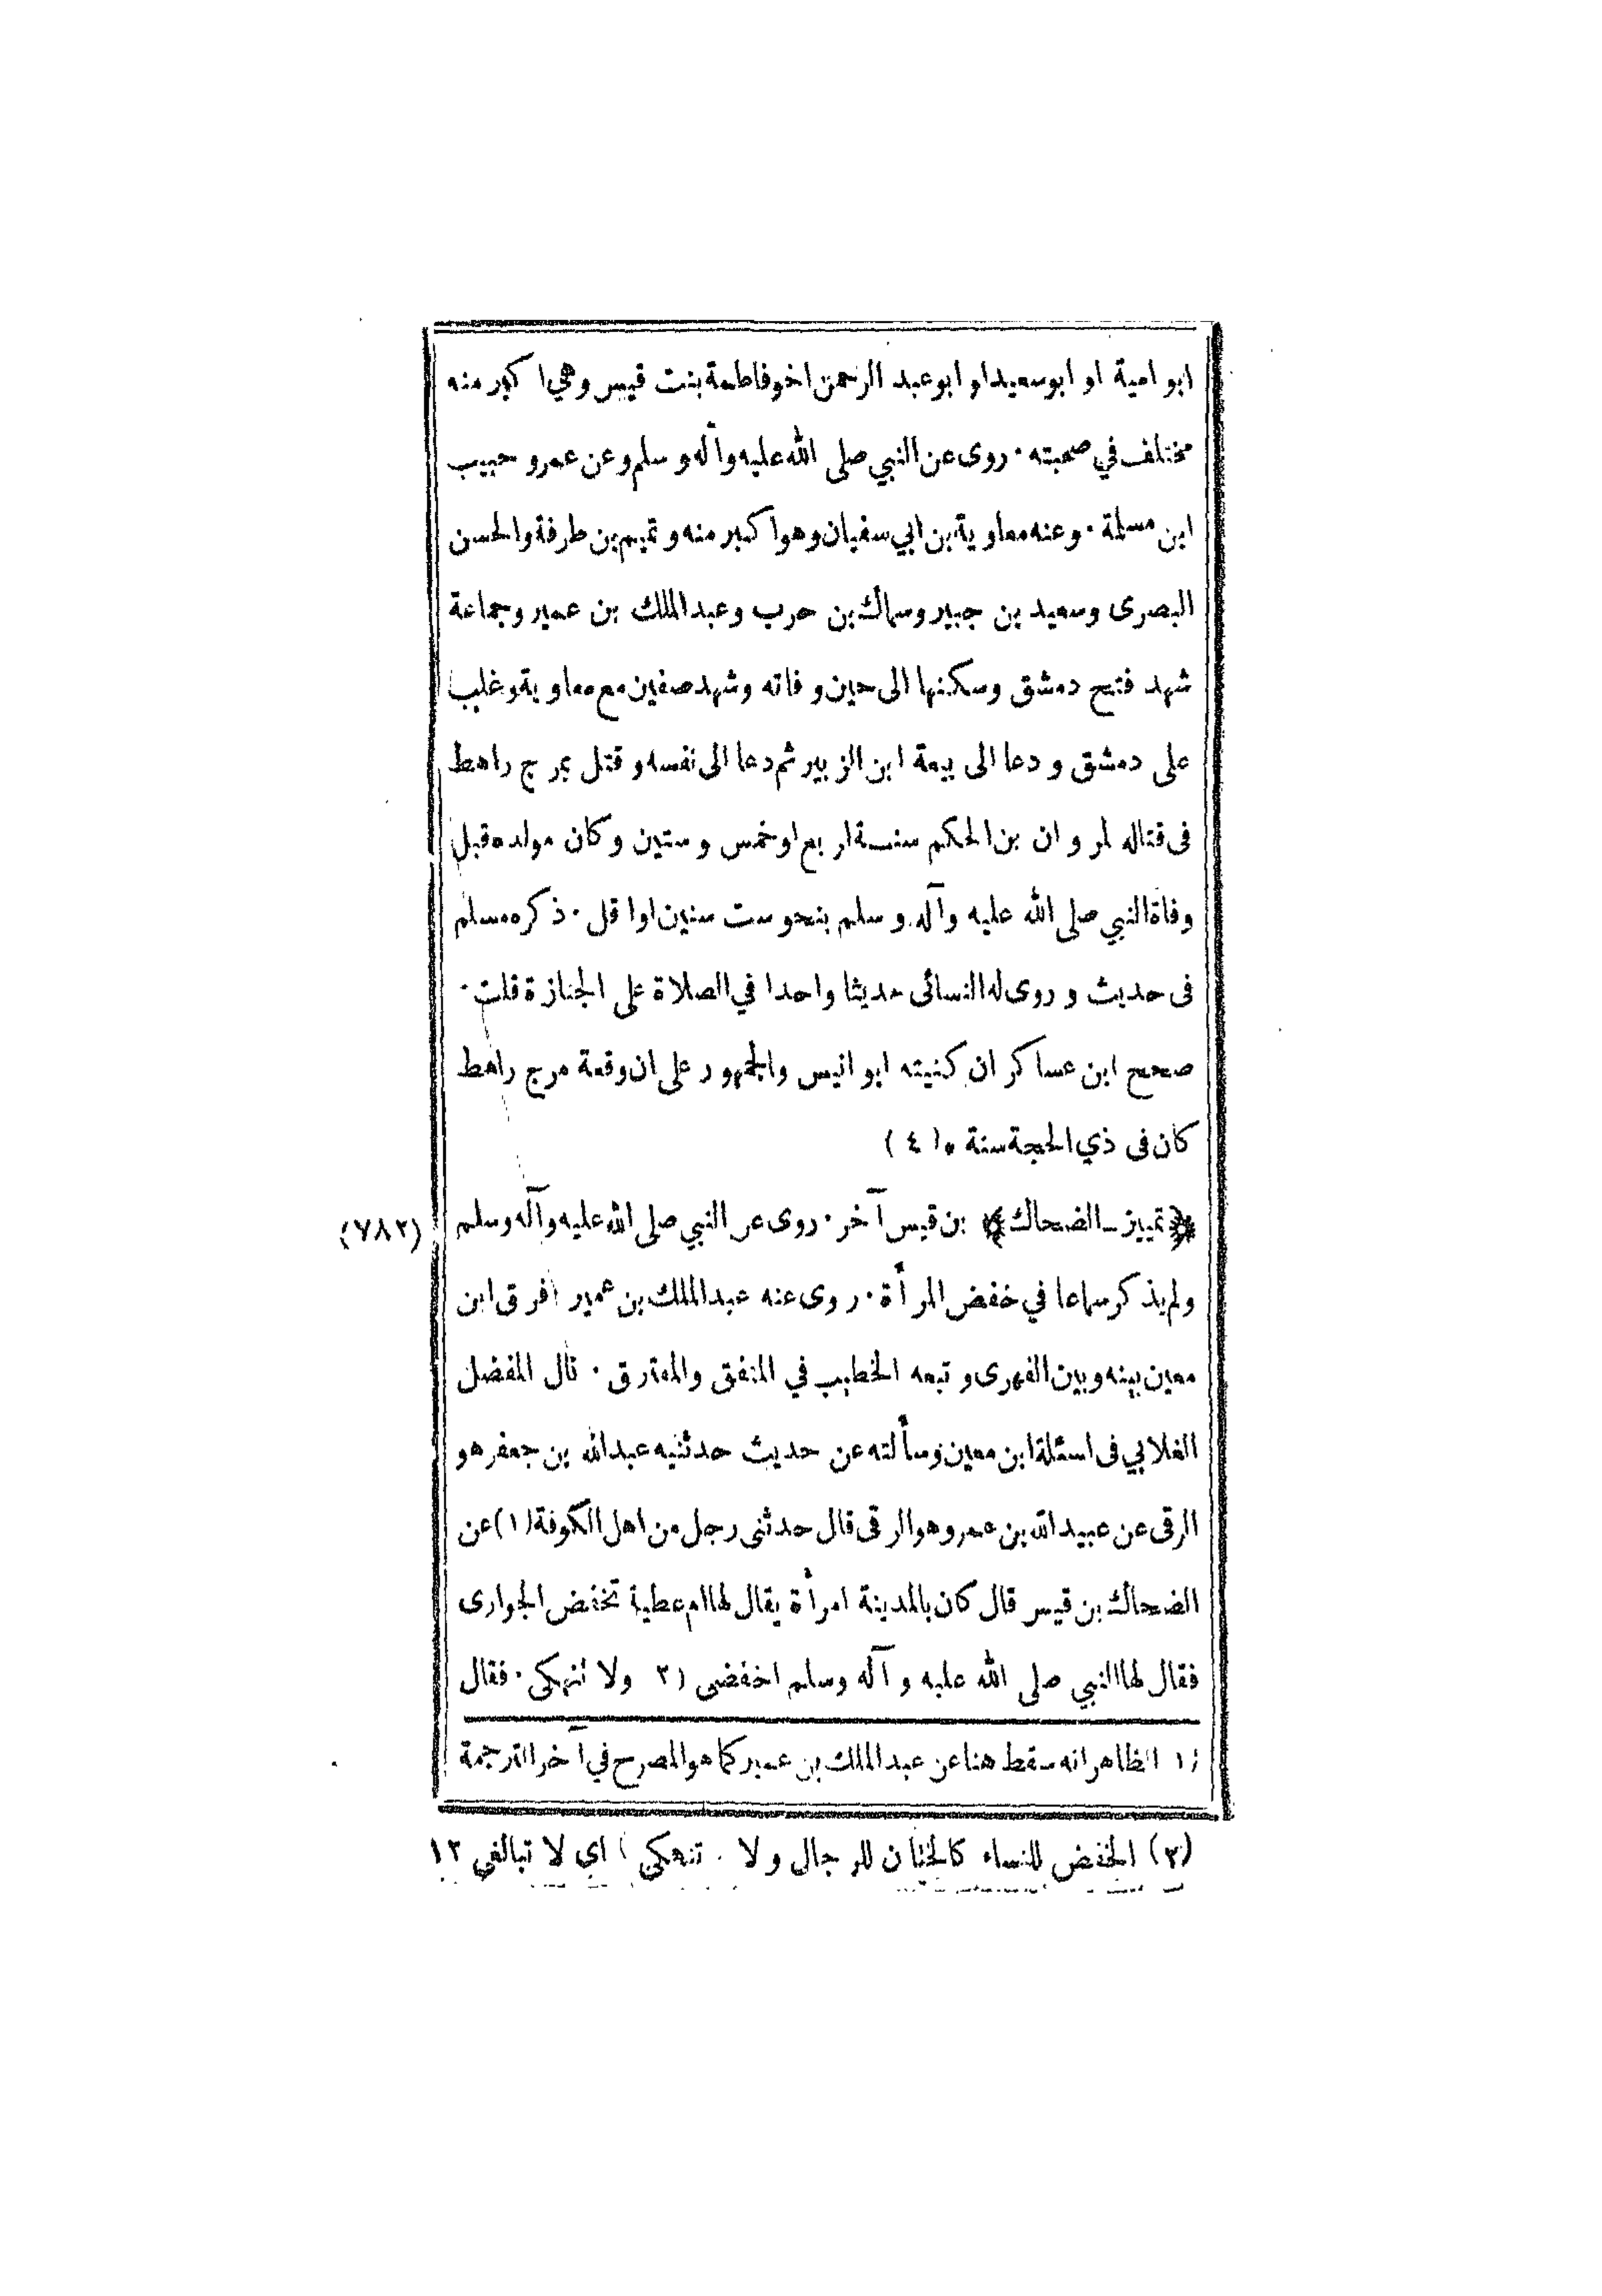 ابو امية او ابوسعيد او ابوعبد الرحمن اخو فاطمة بنت قيس وهي اكبر منه
مختلف في صحبته ٠ روى عن النبي صلى الله عليه وآله وسلم وعن عمرو حبيب
ابن مسلمة ٠ وعنه معاوية بن ابي سفيان وهو اكبر منه و تميم بن طرفة والحسن
البصرى وسعيد بن جبير وسماك بن حرب وعبد الملك بن عمير وجماعة
شهد فتح دمشق وسكنها الى حين وفاته وشهد صفين مع معاوية وغلب
على دمشق و دعا الى بيعة ابن الزبير ثم دعا الى نفسه و قتل بمرج راهط
فى قتاله لمروان بن الحكم سنة اربع او خمس وستين وكان مولده قبل
وفاة النبي صلى الله عليه وآله وسلم بنحو ست سنين او اقل ٠ ذكره مسلم
فى حديث و روى له النسائى حديثا واحدا في الصلاة على الجنازة قلت ٠
صحح ابن عساكر ان كنيته ابو انيس والجمهور على ان وقعة مرج راهط
كان فى ذي الحجة سنة (٤)
﴿ تمييز ـ الضحاك ﴾ بن قيس آخر ٠ روى عن النبي صلى الله عليه وآله وسلم (٧٨٢)
ولم يذكر سماعا في خفض المرأة ٠ روى عنه عبد الملك بن عمير (فرق ابن
معين بينه وبين الفهرى و تبعه الخطيب في المتفق والمفترق ٠ قال المفضل
الغلابي فى اسئلة ابن معين وسألته عن حديث حدثنيه عبد الله بن جعفر هو
الرقى عن عبيد الله بن عمرو وهو الرقى قال حدثنى رجل من اهل الكوفة (١) عن
الضحاك بن قيس قال كان بالمدينة امرأة يقال لها ام عطية تخفض الجوارى
فقال لها النبي صلى الله عليه وآله وسلم اخفضى (٢ ولا تنهكى ٠ فقال
(١ الظاهر انه سقط هنا عن عبد الملك بن عمير كما هو المصرح في آخر الترجمة
(٢) الخفض للنساء كالختان للرجال و لا تنهكى) اى لا تبالغى ١٢